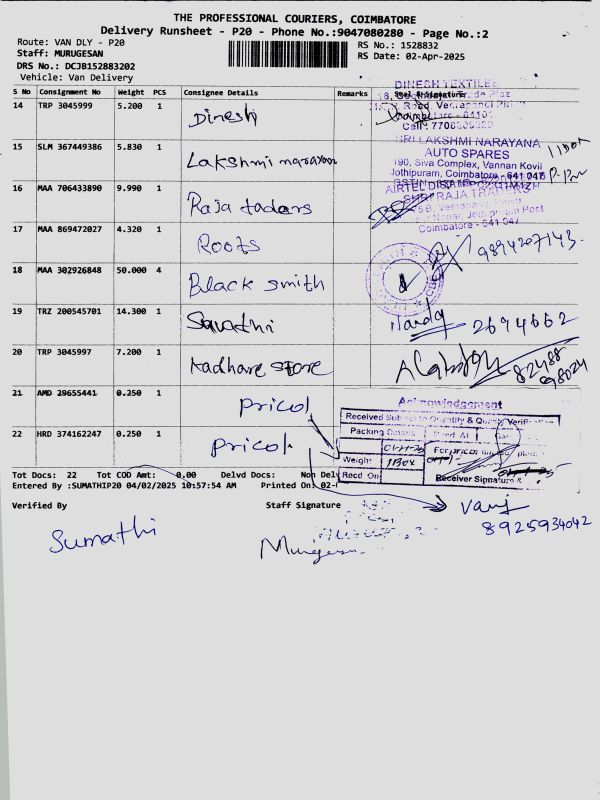 THE PROFESSIONAL COURIERS, COIMBATORE
Delivery Runsheet - P20 - Phone No.:9047080280 - Page No.:2
Route: VAN DLY - P20
Staff: MURUGESAN
DRS No.: DCJB152883202
Vehicle: Van Delivery
RS No.: 1528832
RS Date: 02-Apr-2025
S No Consignment No Weight PCS Consignee Details Remarks
14 TRP 3045999 5.200 1 Dinesh
DINESH TEXTILES
15 SLM 367449386 5.830 1 Lakshmi narayan
SRI LAKSHMI NARAYANA
AUTO SPARES
190, Siva Complex, Vannan Kovil
Jothipuram, Coimbatore - 641 047
16 MAA 706433890 9.990 1 Raja tadars
SHRI RAJA TRADERS
Post
Coimbatore - 641 047
17 MAA 869472027 4.320 1 Roots
9894207143
18 MAA 302926848 50.000 4 Black smith
19 TRZ 200545701 14.300 1 Savathi
2694662
20 TRP 3045997 7.200 1 Kadhare store
82488
98024
21 AMD 29655441 0.250 1 Pricol
22 HRD 374162247 0.250 1 Pricol
Acknowledgement
Received Subject to Quantity & Quality Verification
Packing Details
Weight 1 Box
Recd On
Receiver Signature
Tot Docs: 22 Tot COD Amt: 0.00 Delvd Docs: Non Delv
Entered By :SUMATHIP20 04/02/2025 10:57:54 AM Printed On: 02-
Verified By Staff Signature
Sumathi
8925934042